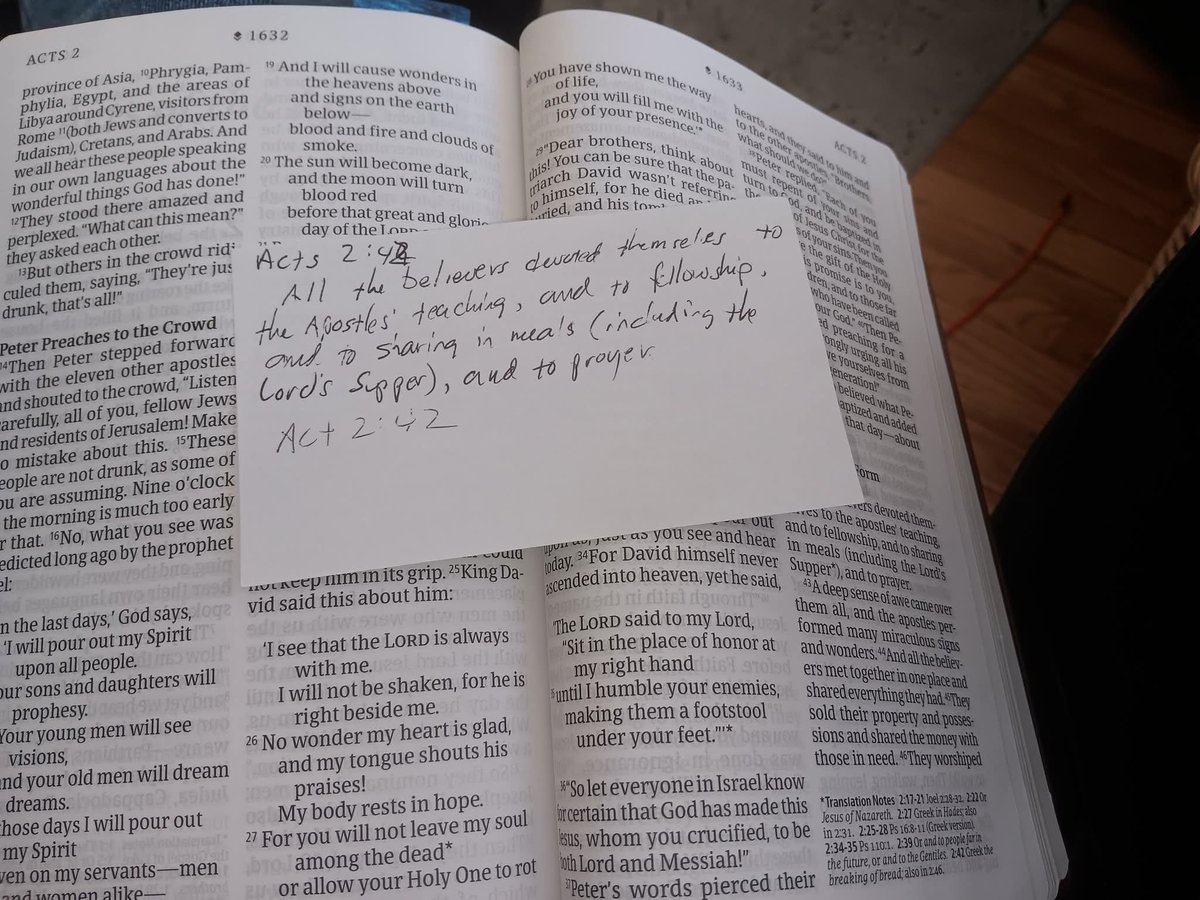 ACTS 2
1632
province of Asia, ¹⁰Phrygia, Pam-
phylia, Egypt, and the areas of
Libya around Cyrene, visitors from
Rome ¹¹(both Jews and converts to
Judaism), Cretans, and Arabs. And
we all hear these people speaking
in our own languages about the
wonderful things God has done!”
¹²They stood there amazed and
perplexed. “What can this mean?”
they asked each other.
¹³But others in the crowd
culed them, saying, “They're
drunk, that's all!”
Peter Preaches to the Crowd
¹⁴Then Peter stepped forward
with the eleven other apostles
and shouted to the crowd, “Listen
carefully, all of you, fellow Jews
and residents of Jerusalem! Make
no mistake about this. ¹⁵These
people are not drunk, as some of
you are assuming. Nine o'clock
the morning is much too early
for that. ¹⁶No, what you see was
predicted long ago by the prophet
‘In the last days,’ God says,
‘I will pour out my Spirit
upon all people.
Your sons and daughters will
prophesy.
Your young men will see
visions,
and your old men will dream
dreams.
those days I will pour out
my Spirit
even on my servants—men
and women alike—
¹⁹ And I will cause wonders in
the heavens above
and signs on the earth
below—
blood and fire and clouds of
smoke.
²⁰ The sun will become dark,
and the moon will turn
blood red
before that great and
day of the LORD
Acts 2:42
All the believers devoted themseles to
the Apostles' teaching, and to fellowship,
and to sharing in meals (including the
Lord's Supper), and to prayer.
Act 2:42
not keep him in its grip. ²⁵King Da-
vid said this about him:
‘I see that the LORD is always
with me.
I will not be shaken, for he is
right beside me.
²⁶ No wonder my heart is glad,
and my tongue shouts his
praises!
My body rests in hope.
²⁷ For you will not leave my soul
among the dead*
or allow your Holy One to rot
1633
²⁸You have shown me the way
of life,
and you will fill me with the
joy of your presence.’*
²⁹“Dear brothers, think about
this! You can be sure that the pa-
triarch David wasn't referring
to himself, for he died
buried, and his
upon us, just as you see and hear
today. ³⁴For David himself never
ascended into heaven, yet he said,
‘The LORD said to my Lord,
“Sit in the place of honor at
my right hand
until I humble your enemies,
making them a footstool
under your feet.”’*
³⁶“So let everyone in Israel know
for certain that God has made this
Jesus, whom you crucified, to be
both Lord and Messiah!”
³⁷Peter's words pierced their
ACTS 2
hearts, and they said to him and
to the other apostles, “Brothers,
what should we do?”
³⁸Peter replied, “Each of you
must repent of your sins and
turn to God, and be baptized in
of Jesus Christ for the
of your sins. Then you
the gift of the Holy
promise is to you,
and to those far
who have been called
our God.” ⁴⁰Then Pe-
preaching for a
strongly urging all his
yourselves from
generation!”
believed what Pe-
baptized and added
that day—about
Form
devoted them-
selves to the apostles' teaching,
and to fellowship, and to sharing
in meals (including the Lord's
Supper*), and to prayer.
⁴³A deep sense of awe came over
them all, and the apostles per-
formed many miraculous signs
and wonders. ⁴⁴And all the believ-
ers met together in one place and
shared everything they had. ⁴⁵They
sold their property and posses-
sions and shared the money with
those in need. ⁴⁶They worshiped
*Translation Notes 2:17-21 Joel 2:28-32. 2:22 Or
Jesus of Nazareth. 2:27 Greek in Hades; also
in 2:31. 2:25-28 Ps 16:8-11 (Greek version).
2:34-35 Ps 110:1. 2:39 Or and to people far in
the future, or and to the Gentiles. 2:42 Greek the
breaking of bread; also in 2:46.